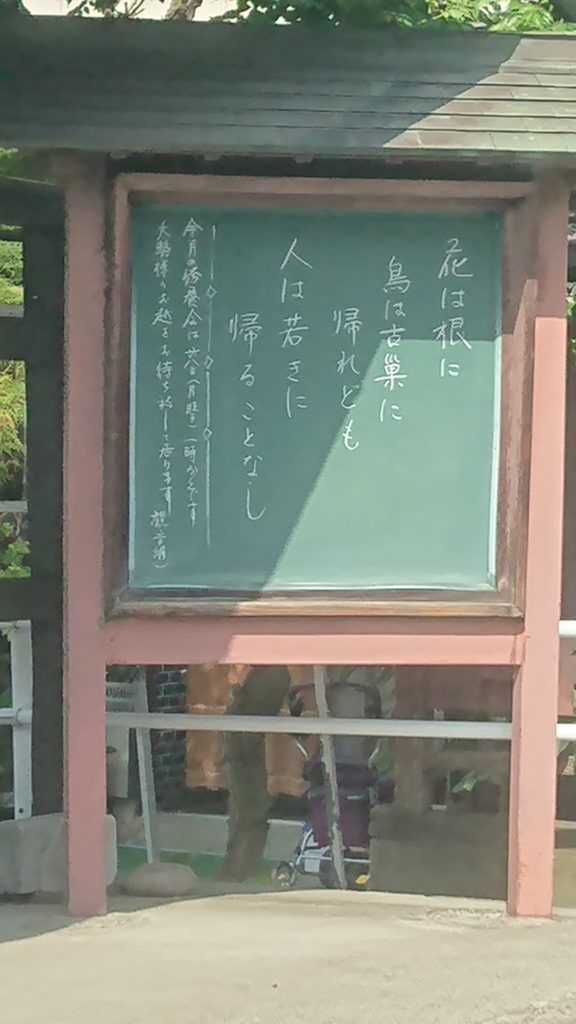 花は根に
鳥は古巣に
帰れども
人は若きに
帰ることなし
今月の修養会は 六日(月曜) 一時からです
大勢様のお越をお待ち致して居ります